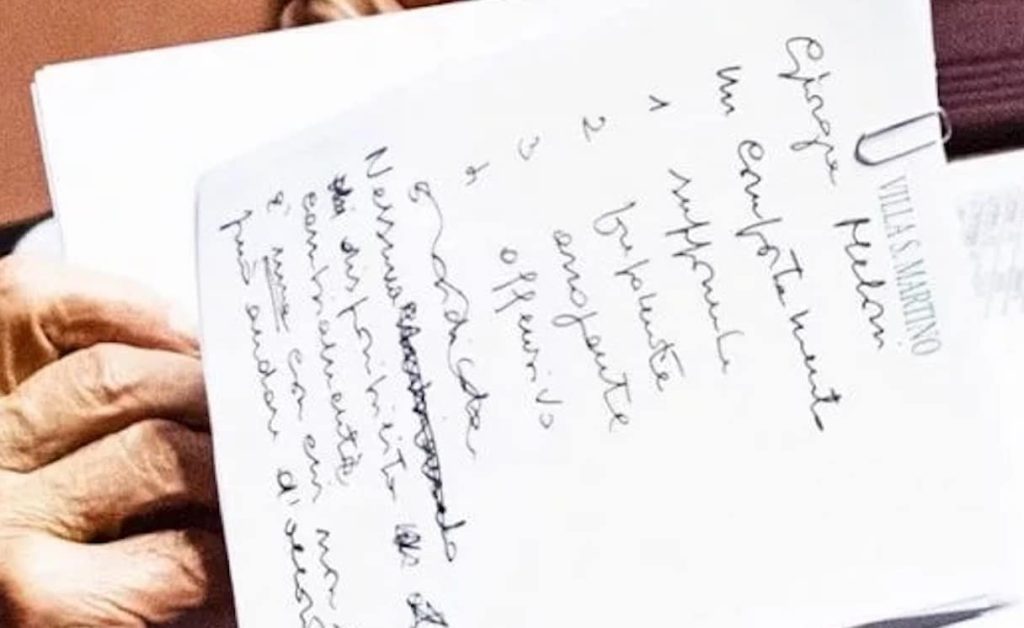 VILLA S. MARTINO
Giorgia Meloni
un comportamento
1 supponente
2 prepotente
3 arrogante
4 offensivo
5 ridicolo
Nessuna
disponibilità
ai cambiamenti
È una con cui non
può andare d'accor